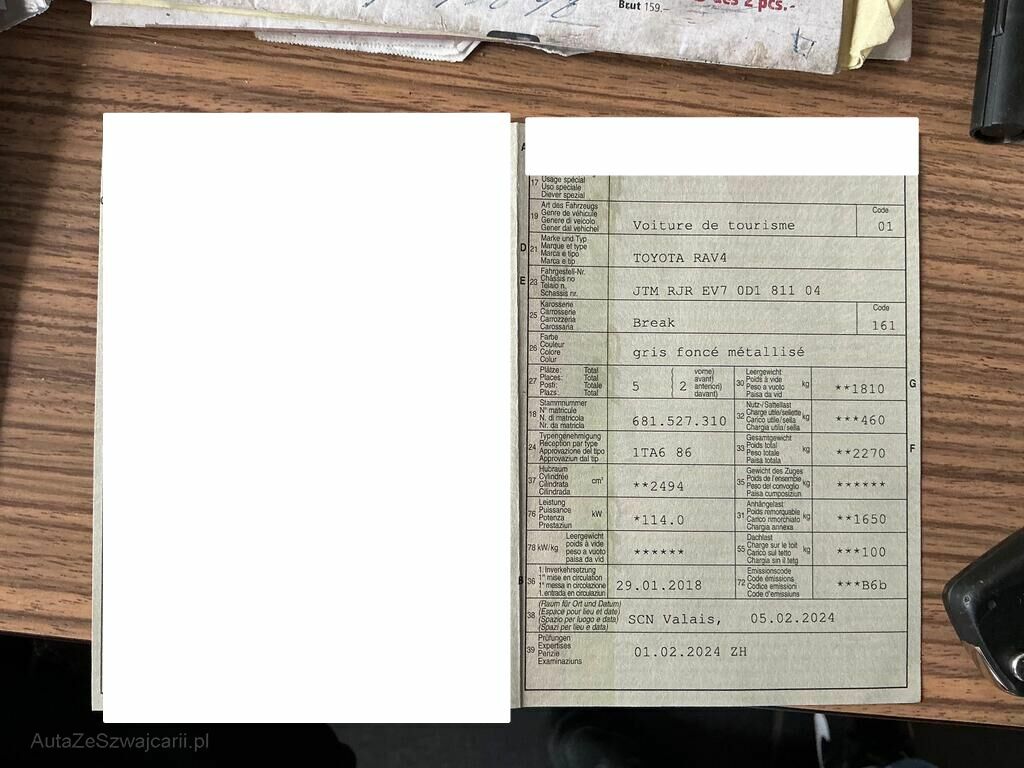 Brut 159.–
des 2 pcs.-
17 Usage spécial
Uso speciale
Diever spezial
19 Art des Fahrzeugs
Genre de véhicule
Genere di veicolo
Gener dal vehichel
Voiture de tourisme
Code
01
D 21 Marke und Typ
Marque et type
Marca e tipo
Marca e tip
TOYOTA RAV4
E 23 Fahrgestell-Nr.
Châssis no
Telaio n.
Schassis nr.
JTM RJR EV7 0D1 811 04
25 Karosserie
Carrosserie
Carrozzeria
Carossaria
Break
Code
161
26 Farbe
Couleur
Colore
Colur
gris foncé métallisé
27 Plätze: Total
Places: Total
Posti: Totale
Plazs: Total
5
2
vorne)
avant)
anteriori)
davant)
30 Leergewicht
Poids à vide
Peso a vuoto
Paisa da vid
kg
**1810
G
18 Stammnummer
N° matricule
N. di matricola
Nr. da matricla
681.527.310
32 Nutz-/Sattellast
Charge utile/sellette
Carico utile/sella
Chargia utila/sella
kg
***460
24 Typengenehmigung
Réception par type
Approvazione del tipo
Approvaziun dal tip
1TA6 86
33 Gesamtgewicht
Poids total
Peso totale
Paisa totala
kg
**2270
F
37 Hubraum
Cylindrée
Cilindrata
Cilindrada
cm³
**2494
35 Gewicht des Zuges
Poids de l'ensemble
Peso del convoglio
Paisa cumposiziun
kg
******
76 Leistung
Puissance
Potenza
Prestaziun
kW
*114.0
31 Anhängelast
Poids remorquable
Carico rimorchiato
Chargia annexa
kg
**1650
78 kW/kg
Leergewicht
poids à vide
peso a vuoto
paisa da vid
******
55 Dachlast
Charge sur le toit
Carico sul tetto
Chargia sin il tetg
kg
***100
B 36 1. Inverkehrsetzung
1re mise en circulation
1a messa in circolazione
1. entrada en circulaziun
29.01.2018
72 Emissionscode
Code émissions
Codice emissioni
Code d'emissiuns
***B6b
38 (Raum für Ort und Datum)
(Espace pour lieu et date)
(Spazio per luogo e data)
(Spazi per lieu e data)
SCN Valais, 05.02.2024
39 Prüfungen
Expertises
Perizie
Examinaziuns
01.02.2024 ZH
AutaZeSzwajcarii.pl